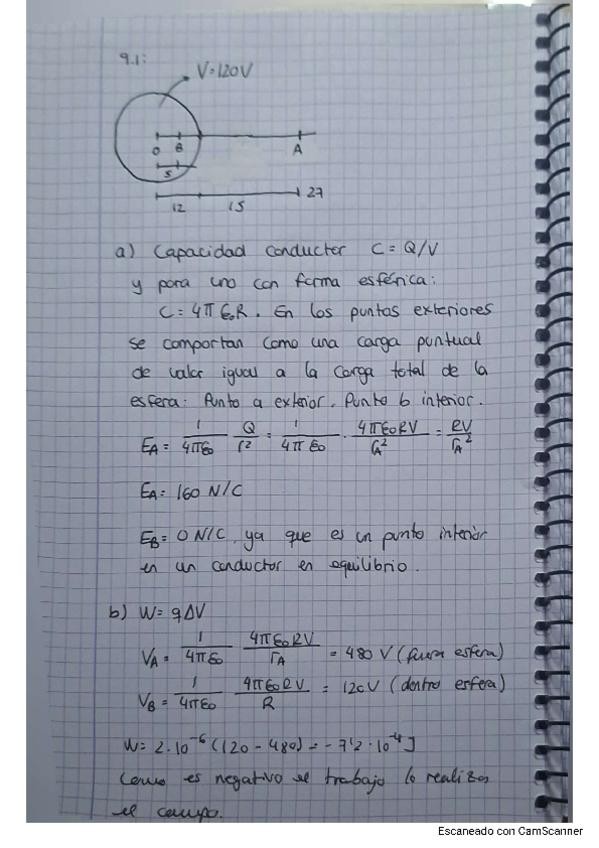 9.1:
V=120V
O B A
5
27
12 15
a) Capacidad conductor C = Q/V
y para uno con forma esférica:
C = 4π ε₀R. En los puntos exteriores
se comportan como una carga puntual
de valor igual a la carga total de la
esfera. Punto a exterior. Punto b interior.
E_A = 1/4πε₀ Q/r² = 1/4πε₀ · 4πε₀RV/r_A² = RV/r_A²
E_A = 160 N/C
E_B = 0 N/C, ya que es un punto interior
en un conductor en equilibrio.
b) W = qΔV
V_A = 1/4πε₀ 4πε₀RV/r_A = 480 V (fuera esfera)
V_B = 1/4πε₀ 4πε₀RV/R = 120V (dentro esfera)
W = 2·10⁻⁶ (120 - 480) = -7'2·10⁻⁴ J
Como es negativo el trabajo lo realiza
el campo.
Escaneado con CamScanner